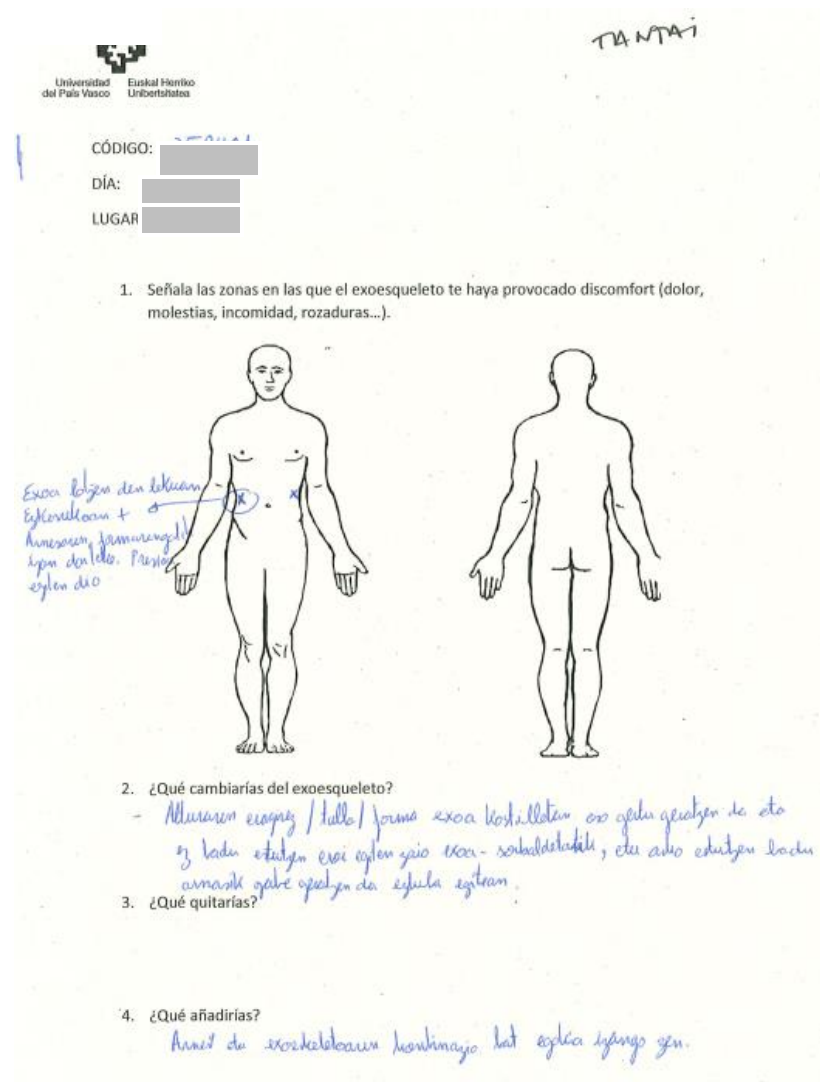 TIANTAI
Universidad Euskal Herriko
del País Vasco Unibertsitatea
CÓDIGO:
DÍA:
LUGAR
1. Señala las zonas en las que el exoesqueleto te haya provocado discomfort (dolor,
molestias, incomidad, rozaduras...).
Exoa lotzen den lekuan
Ezkerrekoan +
Arnesaren formarengatik
izan daiteke. Presioa
egiten dio
2. ¿Qué cambiarías del exoesqueleto?
- Alturaren eragiez / talla / forma exoa kostilletan oso gertu geratzen da eta
ez badu estutzen erori egiten zaio exoa - sorbaldetatik, eta asko estutzen badu
arnasik gabe geratzen da
3. ¿Qué quitarías?
4. ¿Qué añadirías?
Arnes da exoeskeletoaren konbinazio bat egokia izango zen.